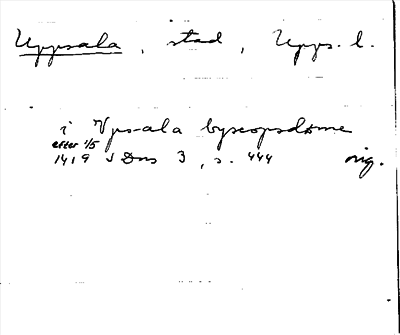 Uppsala, stad, Upps. l.
i Vpsala byscopsdøme
efter 1/5
1419 SDns 3, s. 444 orig.